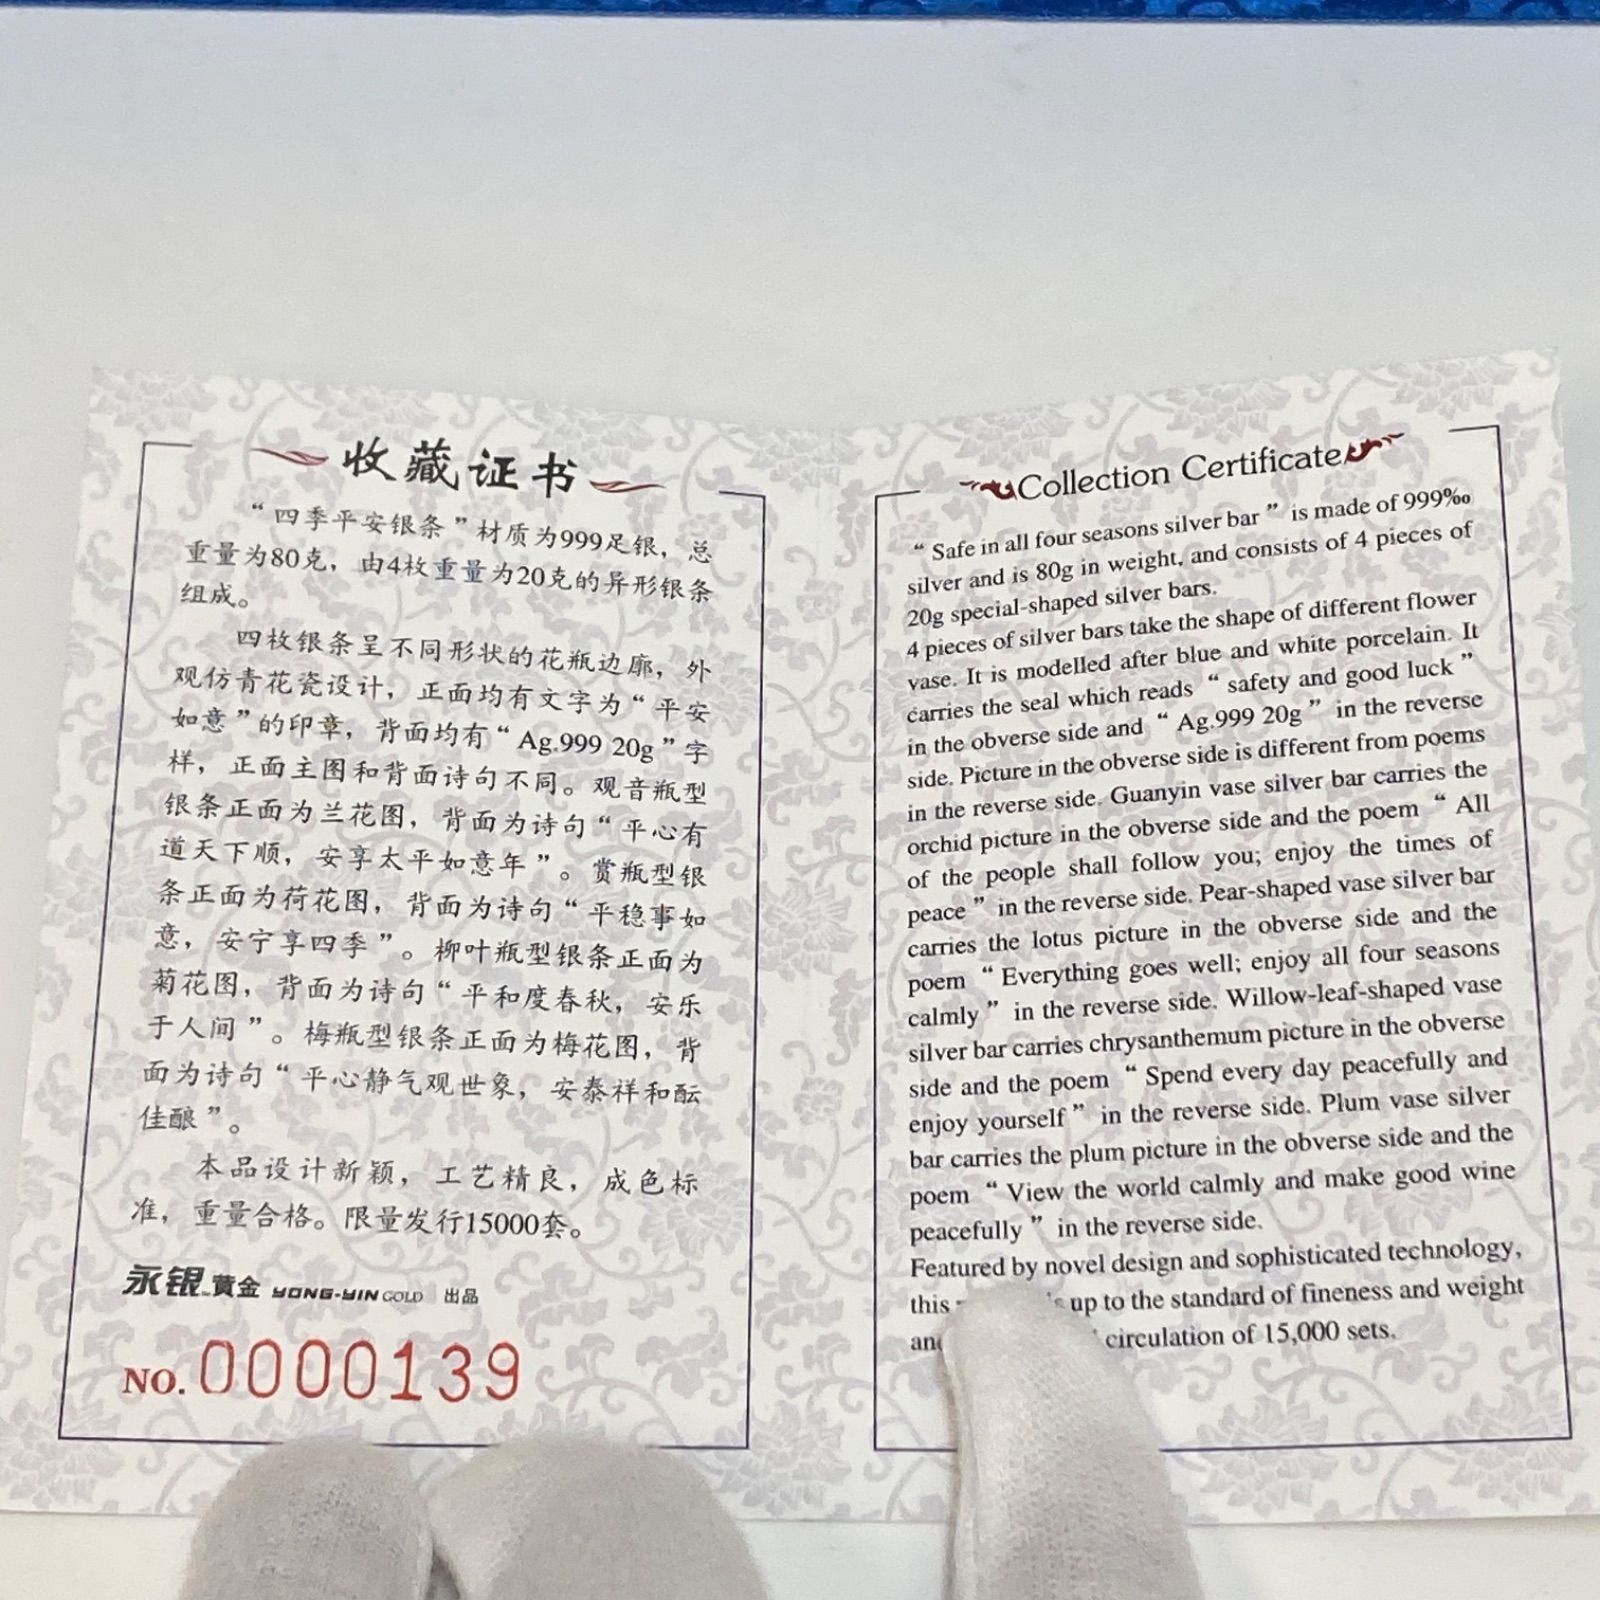 收藏证书
“四季平安银条”材质为999足银，总
重量为80克，由4枚重量为20克的异形银条
组成。
四枚银条呈不同形状的花瓶边廓，外
观仿青花瓷设计，正面均有文字为“平安
如意”的印章，背面均有“Ag.999 20g”字
样，正面主图和背面诗句不同。观音瓶型
银条正面为兰花图，背面为诗句“平心有
道天下顺，安享太平如意年”。赏瓶型银
条正面为荷花图，背面为诗句“平稳事如
意，安宁享四季”。柳叶瓶型银条正面为
菊花图，背面为诗句“平和度春秋，安乐
于人间”。梅瓶型银条正面为梅花图，背
面为诗句“平心静气观世象，安泰祥和酝
佳酿”。
本品设计新颖，工艺精良，成色标
准，重量合格。限量发行15000套。
永银™黄金 YONG-YIN GOLD 出品
NO. 0000139
Collection Certificate
“Safe in all four seasons silver bar” is made of 999‰
silver and is 80g in weight, and consists of 4 pieces of
20g special-shaped silver bars.
4 pieces of silver bars take the shape of different flower
vase. It is modelled after blue and white porcelain. It
carries the seal which reads “safety and good luck”
in the obverse side and “Ag.999 20g” in the reverse
side. Picture in the obverse side is different from poems
in the reverse side. Guanyin vase silver bar carries the
orchid picture in the obverse side and the poem “All
of the people shall follow you; enjoy the times of
peace” in the reverse side. Pear-shaped vase silver bar
carries the lotus picture in the obverse side and the
poem “Everything goes well; enjoy all four seasons
calmly” in the reverse side. Willow-leaf-shaped vase
silver bar carries chrysanthemum picture in the obverse
side and the poem “Spend every day peacefully and
enjoy yourself” in the reverse side. Plum vase silver
bar carries the plum picture in the obverse side and the
poem “View the world calmly and make good wine
peacefully” in the reverse side.
Featured by novel design and sophisticated technology,
this up to the standard of fineness and weight
circulation of 15,000 sets.